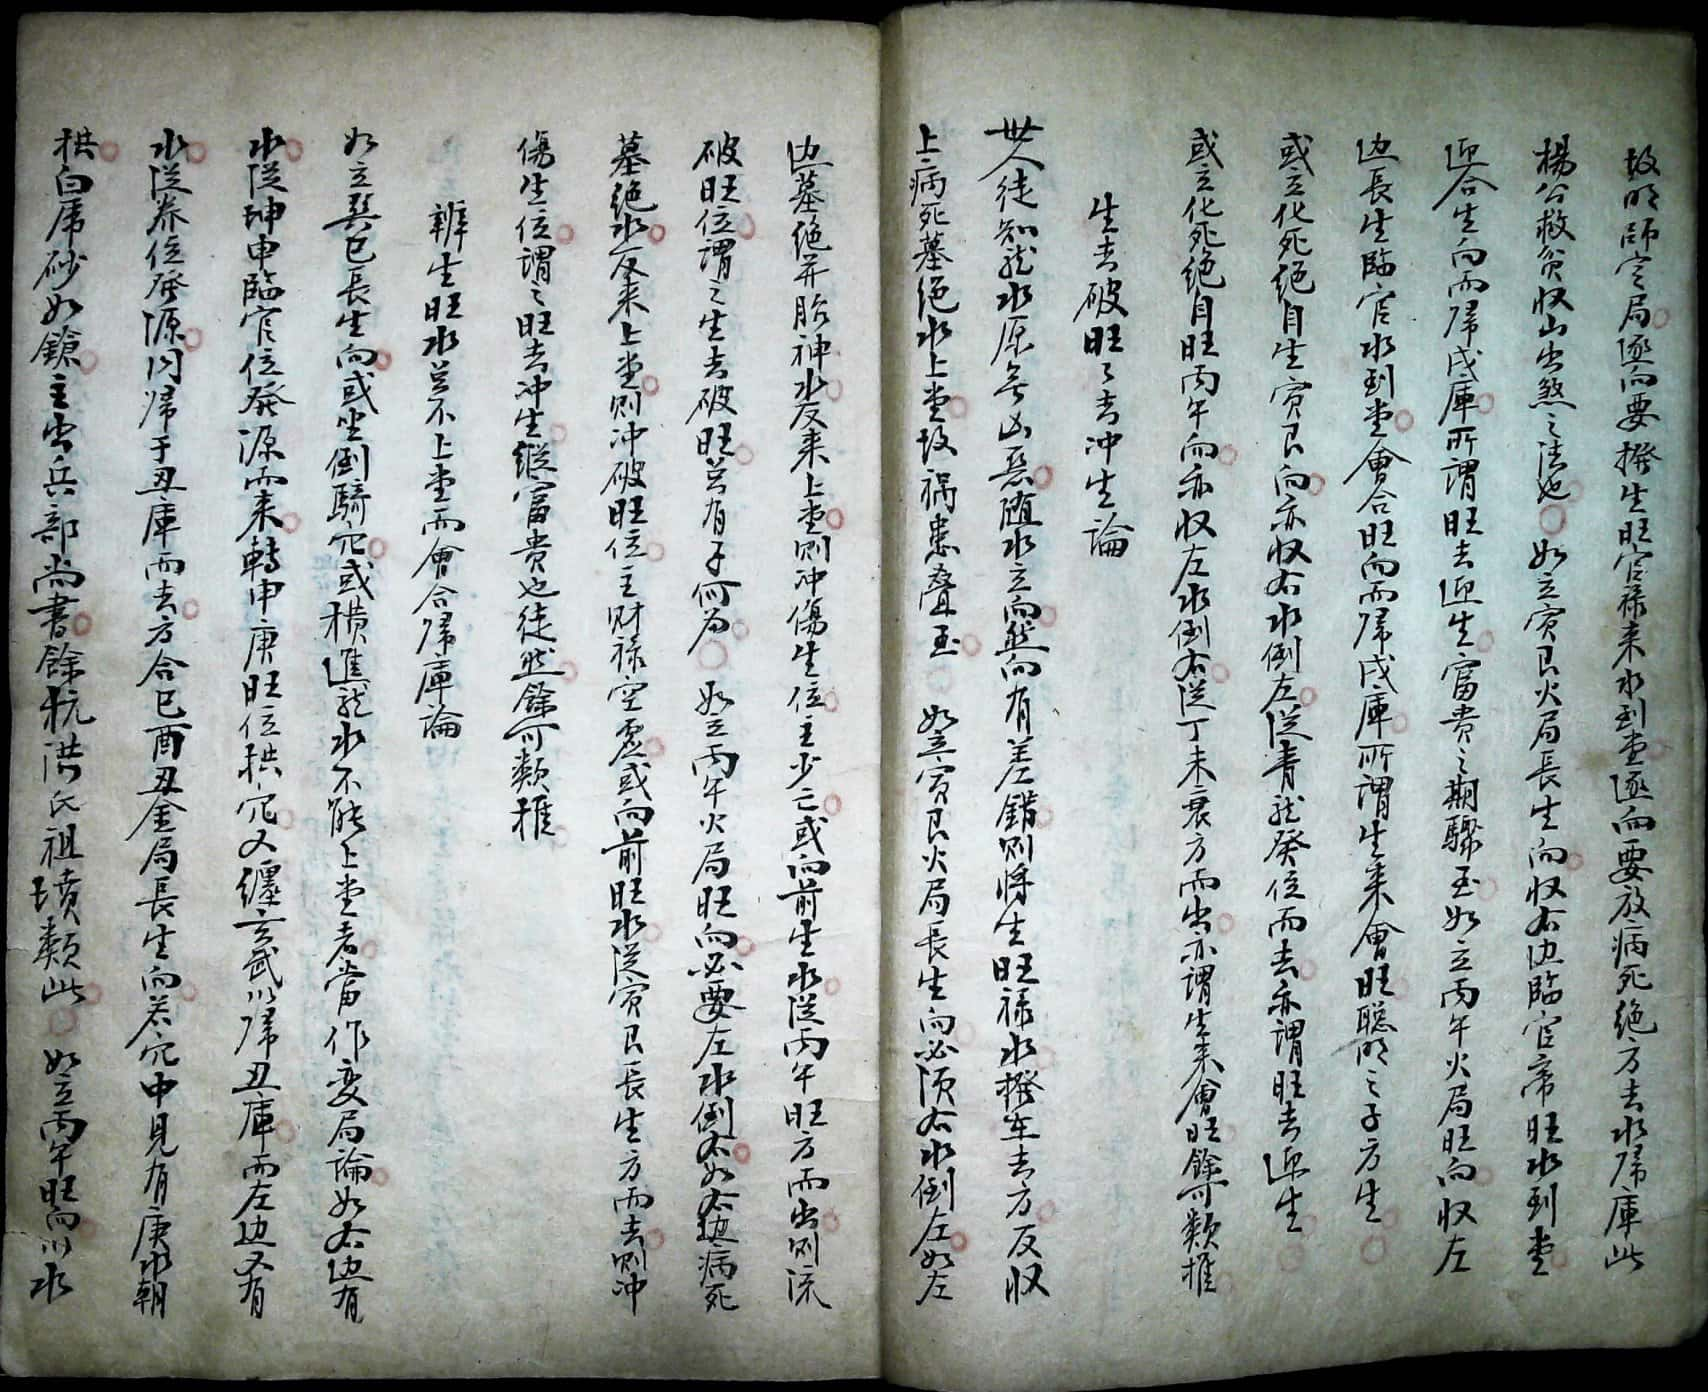 故明師定局逐向要撥生旺官祿来水到堂逐向要放病死絶方去水歸庫此
楊公救貧収山出煞之法也如立寅艮火局長生向収右边臨官帝旺水到堂
迎合生向而歸戌庫所謂旺去迎生富貴之期驟至如立丙午火局旺向収左
边長生臨官水到堂會合旺向而歸戌庫所謂生来會旺聰明之子方生
或立化死絶自生寅艮向亦収右水倒左從青龍癸位而去亦謂旺去迎生
或立化死絶自旺丙午向亦収左水倒右從丁未衰方而出亦謂生来會旺餘可類推
生去破旺旺去冲生論
世人徒知龍水原無凶惡随水立向然向有差錯则将生旺禄水撥在去方反収
上病死墓绝水上堂故禍患叠至如立寅艮火局長生向必须右水倒左如左
边墓绝并胎神水反来上堂则冲傷生位主少亡或向前生水從丙午旺方而出则流
破旺位謂之生去破旺若有子何為如立丙午火局旺向必要左水倒右如右边病死
墓绝水反来上堂则冲破旺位主财禄空虚或向前旺水從寅艮長生方而去则冲
傷生位謂之旺去冲生縱富貴也徒然餘可類推
辨生旺水若不上堂而會合歸庫論
如立巽巳長生向或坐倒騎穴或横進龍水不能上堂者當作变局論如右边有
水從坤申臨官位發源而来轉申庚旺位拱穴又纏玄武以歸丑庫而左边又有
水從养位發源同歸于丑庫而去方合巳酉丑金局長生向若穴中見有庚水朝
拱白虎砂如鎗主出兵部尚書餘杭洪氏祖墳類此如立丙午旺向以水